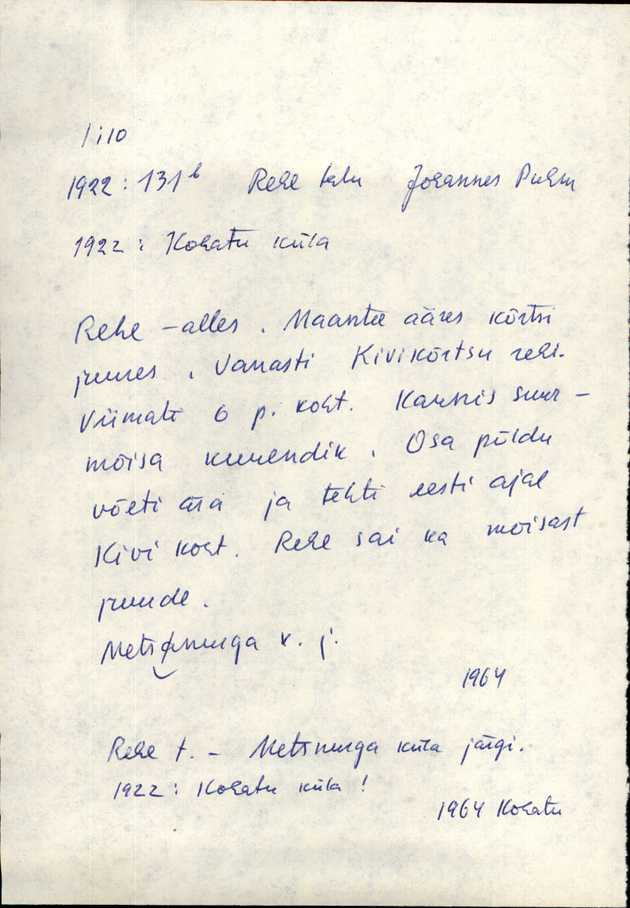 1922: 131b Rehe talu Johannes Puhm
1922: Kohatu küla
Rehe – alles. Maantee ääres kõrtsi
juures. Vanasti Kivikõrtsu rehi.
Viimati 6 p. koht. Kaunis suur –
mõisa kuuendik. Osa põldu
võeti ära ja tehti eesti ajal
Kivi koht. Rehe sai ka mõisast
juurde.
Metsanurga k. j.
1964
Rehe t. – Metsnurga küla järgi.
1922: Kohatu küla!
1964 Kohatu